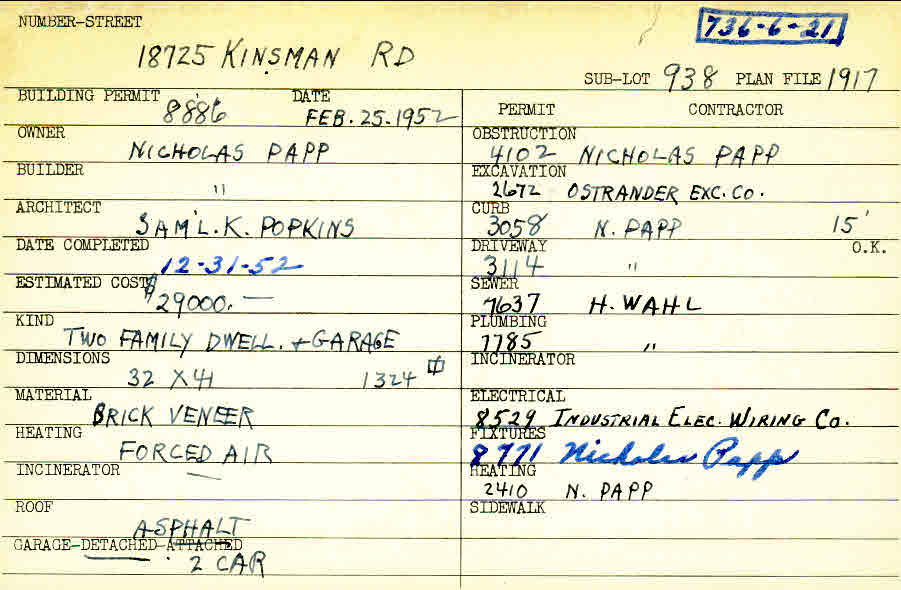 NUMBER-STREET
736-6-21
18725 KINSMAN RD
SUB-LOT 938 PLAN FILE 1917
BUILDING PERMIT DATE
8886 FEB. 25. 1952
OWNER
NICHOLAS PAPP
BUILDER
"
ARCHITECT
SAM'L. K. POPKINS
DATE COMPLETED
12-31-52
ESTIMATED COST
$29000.—
KIND
TWO FAMILY DWELL. + GARAGE
DIMENSIONS
32 X 41 1324
MATERIAL
BRICK VENEER
HEATING
FORCED AIR
INCINERATOR
—
ROOF
ASPHALT
GARAGE-DETACHED-ATTACHED
2 CAR
PERMIT CONTRACTOR
OBSTRUCTION
4102 NICHOLAS PAPP
EXCAVATION
2672 OSTRANDER EXC. CO.
CURB
3058 N. PAPP 15'
DRIVEWAY O.K.
3114 "
SEWER
7637 H. WAHL
PLUMBING
7785 "
INCINERATOR
ELECTRICAL
8529 INDUSTRIAL ELEC. WIRING CO.
FIXTURES
8771 Nicholas Papp
HEATING
2410 N. PAPP
SIDEWALK